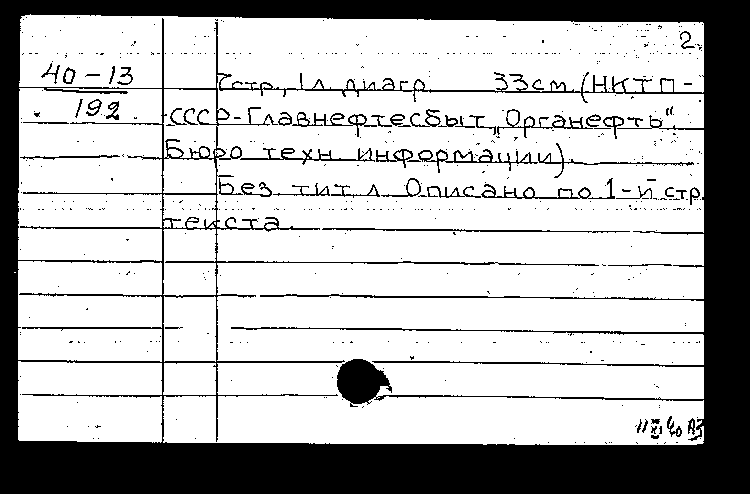 2.
40-13
192
7стр., 1л. диагр. 33см. (НКТП-
СССР-Главнефтесбыт „Органефть“.
Бюро техн. информации).
Без тит. л. Описано по 1-й стр.
текста.